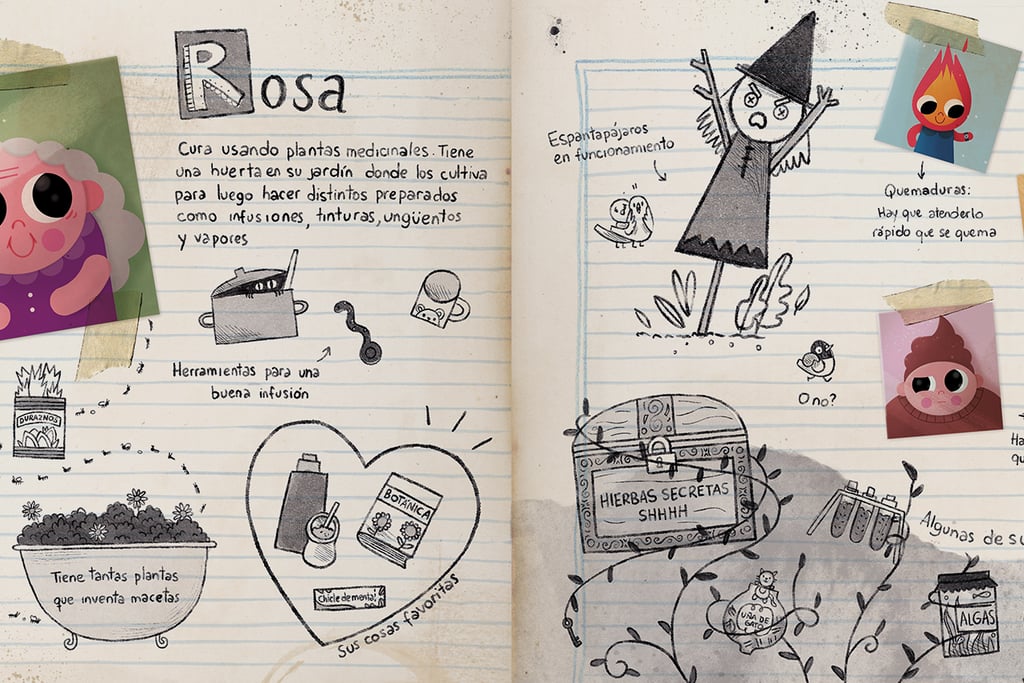 Rosa
Cura usando plantas medicinales. Tiene
una huerta en su jardín donde los cultiva
para luego hacer distintos preparados
como infusiones, tinturas, ungüentos
y vapores
Herramientas para una
buena infusión
DURAZNOS
Tiene tantas plantas
que inventa macetas
BOTÁNICA
Chicle de menta!
Sus cosas favoritas
Espantapájaros
en funcionamiento
Quemaduras:
Hay que atenderlo
rápido que se quema
O no?
HIERBAS SECRETAS
SHHHH
Algunas de su
UÑA DE
GATO
ALGAS